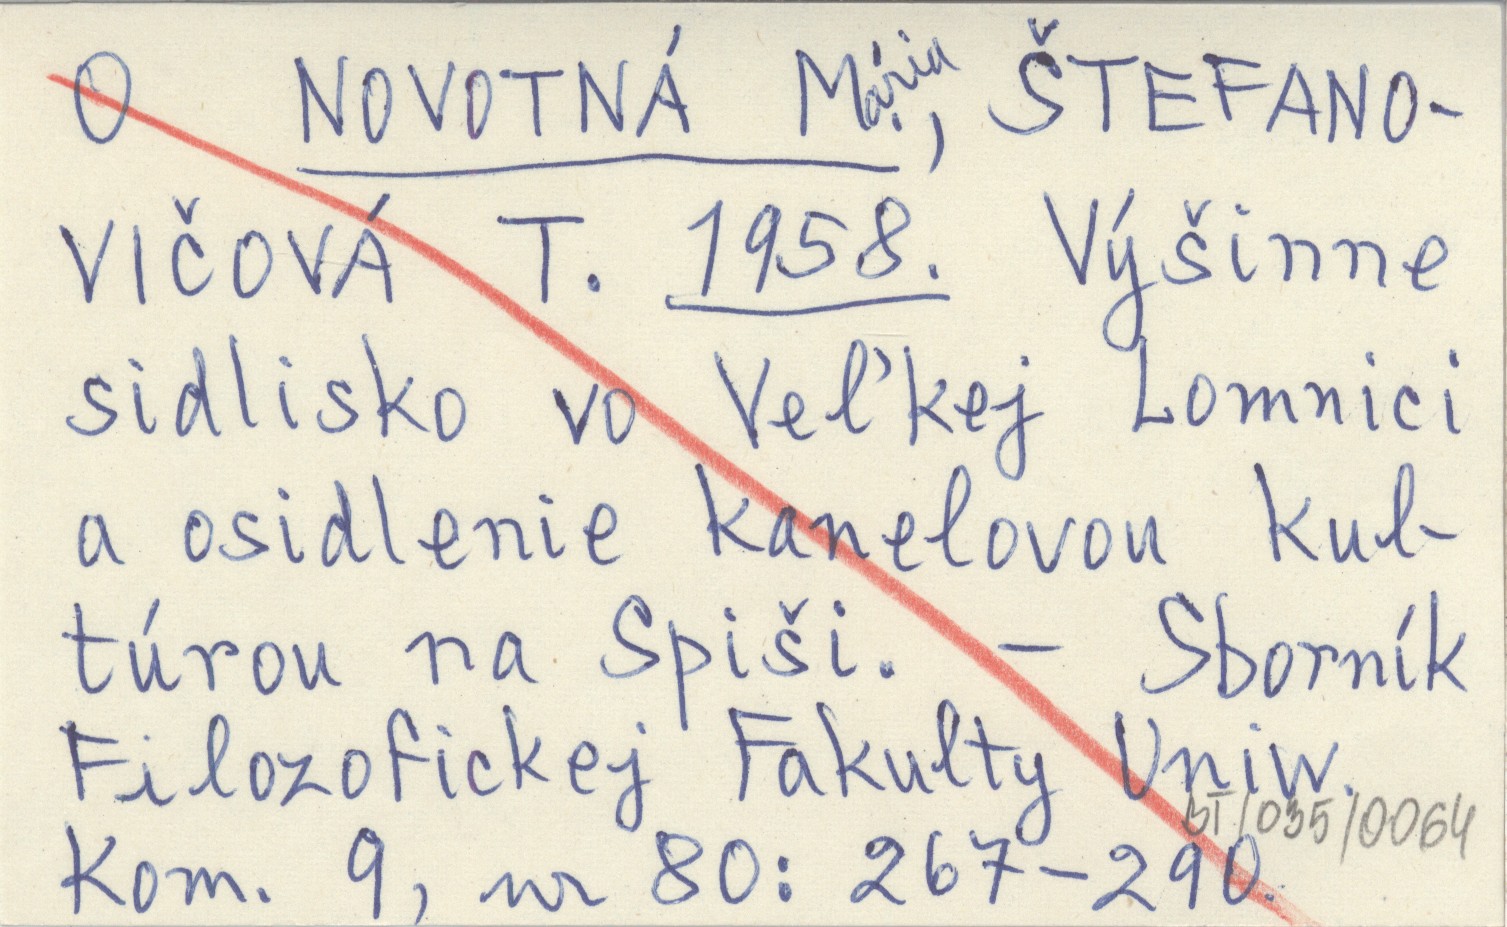 O NOVOTNÁ Mária, ŠTEFANO-
VIČOVÁ T. 1958. Výšinne
sidlisko vo Veľkej Lomnici
a osidlenie kanelovou kul-
túrou na Spiši. – Sborník
Filozofickej Fakulty Uniw.
BT/035/0064
Kom. 9, nr 80: 267–290.